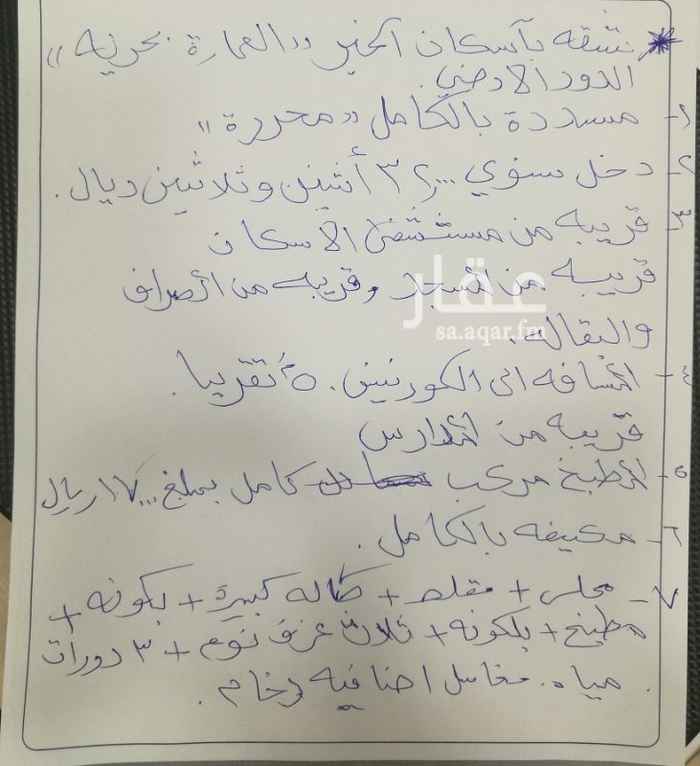 * شقه بآسكان الخبر "العمارة بحريه"
الدور الارضي.
١- مسددة بالكامل "محررة"
٢- دخل سنوي ٣٢٠٠٠ أثنين وثلاثين ريال.
٣- قريبه من مستشفى الاسكان
قريبه من المسجد وقريبه من الصراف
والبقاله.
عقار
sa.aqar.fm
٤- المسافه الى الكورنيش. ٥ تقريبا.
قريبه من المدارس
٥- المطبخ مركب كامل بمبلغ ١٧٠٠٠ ريال
٦- مكيفه بالكامل.
٧- مجلس + مقلط + صاله كبيرة + بلكونه +
مطبخ + بلكونه + ثلاث غرف نوم + ٣ دورات
مياه. مغاسل اضافيه رخام.